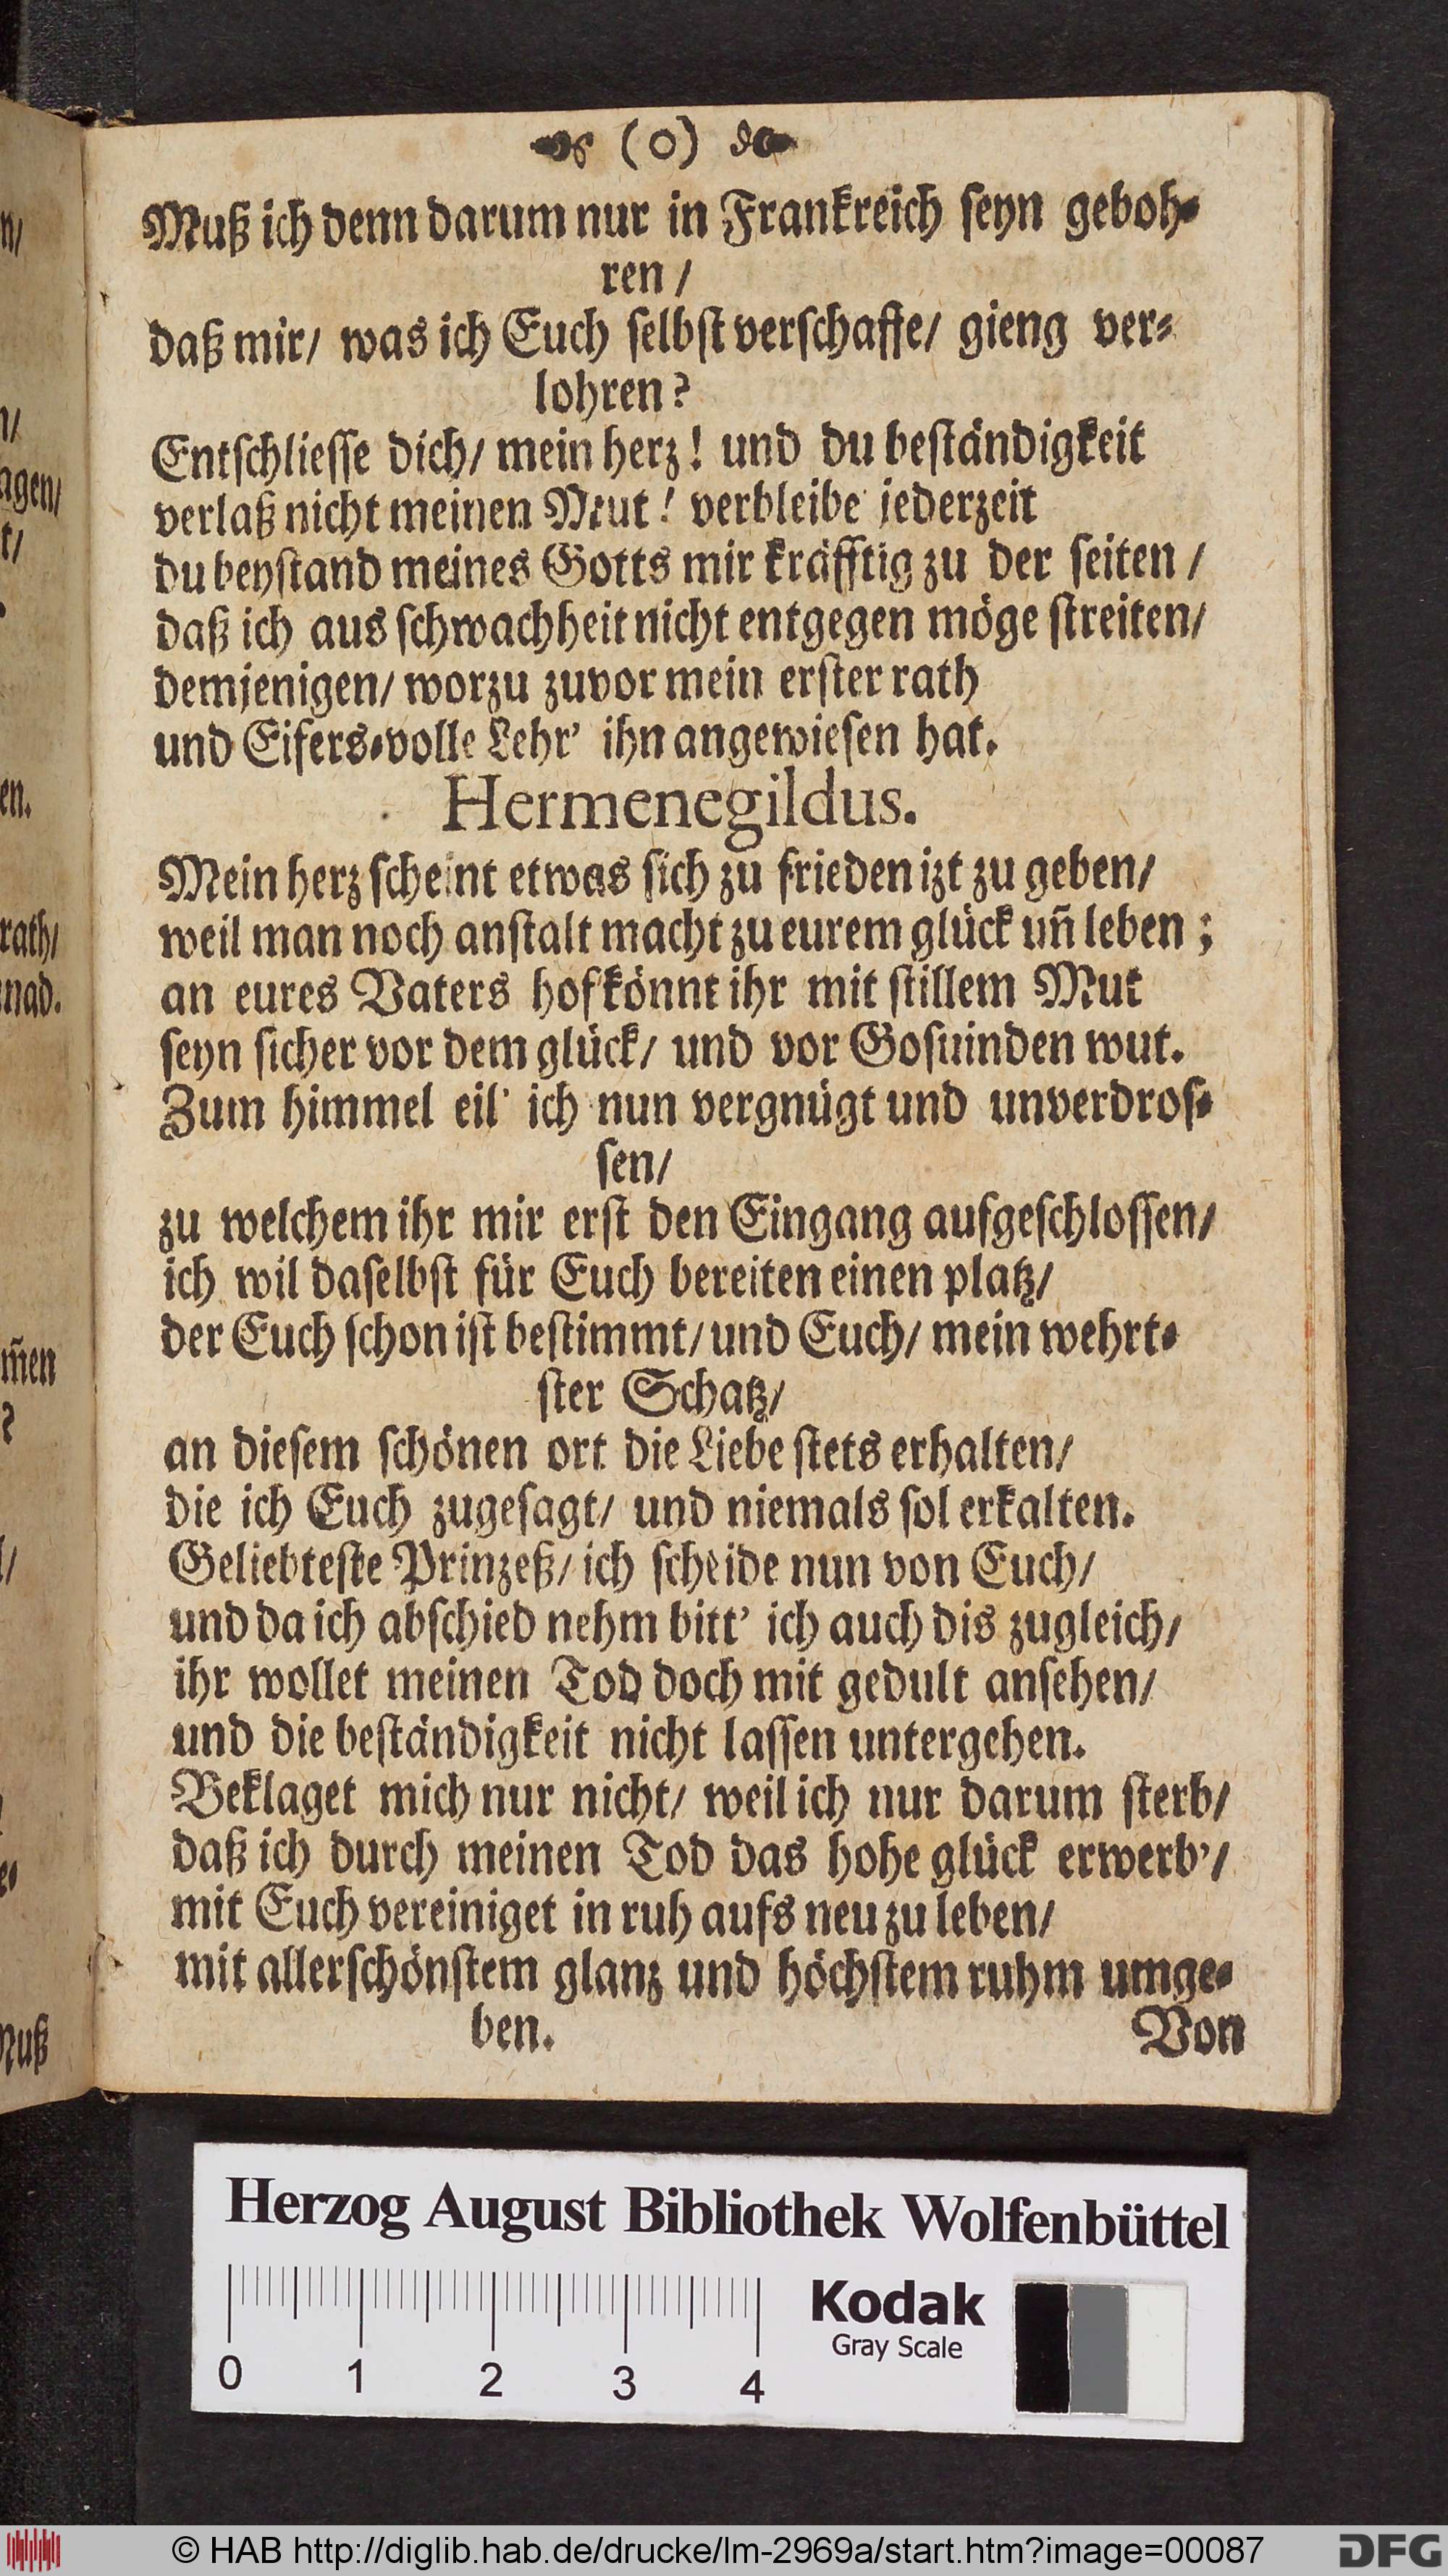 (o)
Muß ich denn darum nur in Frankreich seyn geboh-
ren /
daß mir/ was ich Euch selbst verschaffe/ gieng ver-
lohren?
Entschliesse dich/ mein herz! und du beständigkeit
verlaß nicht meinen Mut! verbleibe jederzeit
du beystand meines Gotts mir kräfftig zu der seiten /
daß ich aus schwachheit nicht entgegen möge streiten/
demjenigen/ worzu zuvor mein erster rath
und Eifers-volle Lehr' ihn angewiesen hat.
Hermenegildus.
Mein herz scheint etwas sich zu frieden izt zu geben/
weil man noch anstalt macht zu eurem glück uñ leben;
an eures Vaters hof könnt ihr mit stillem Mut
seyn sicher vor dem glück/ und vor Gosuinden wut.
Zum himmel eil' ich nun vergnügt und unverdros-
sen/
zu welchem ihr mir erst den Eingang aufgeschlossen/
ich wil daselbst für Euch bereiten einen platz/
der Euch schon ist bestimmt/ und Euch/ mein wehrt-
ster Schatz/
an diesem schönen ort die Liebe stets erhalten/
die ich Euch zugesagt/ und niemals sol erkalten.
Geliebteste Prinzeß/ ich scheide nun von Euch/
und da ich abschied nehm bitt' ich auch dis zugleich/
ihr wollet meinen Tod doch mit gedult ansehen/
und die beständigkeit nicht lassen untergehen.
Beklaget mich nur nicht/ weil ich nur darum sterb/
daß ich durch meinen Tod das hohe glück erwerb'/
mit Euch vereiniget in ruh aufs neu zu leben/
mit allerschönstem glanz und höchstem ruhm umge-
ben.
Von
Herzog August Bibliothek Wolfenbüttel
0 1 2 3 4
Kodak
Gray Scale
© HAB http://diglib.hab.de/drucke/lm-2969a/start.htm?image=00087
DFG